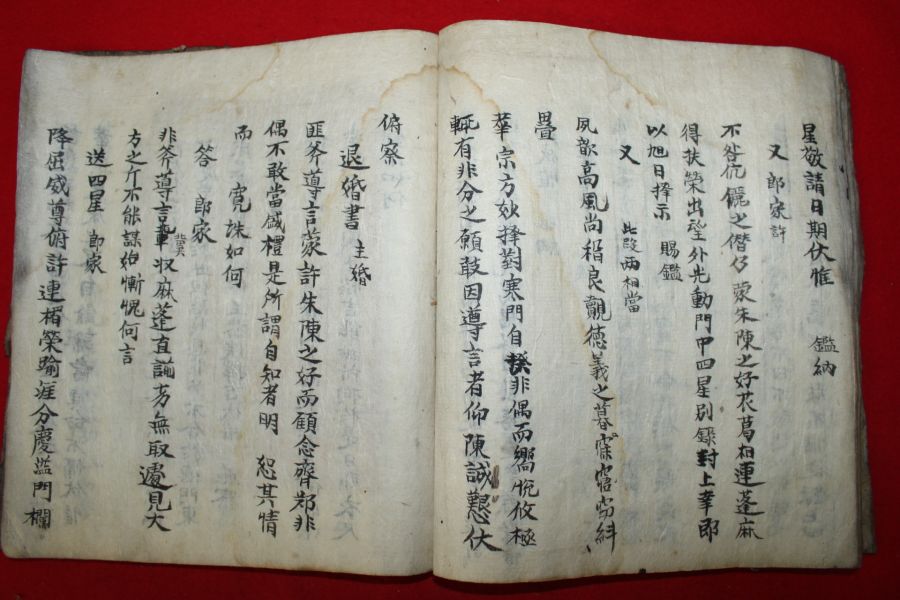 星敬請日期伏惟 鑑納
又 郎家許
不咎伉儷之僭仍蒙朱陳之好衣葛相連蓬麻
得扶榮出望外光動門甲四星別錄封上幸卽
以旭日擇示 賜鑑
又 此改両相當
夙歆高風尚稽良覿德義之慕寤寐
疊
華宗方妙擇對寒門自揆非偶而嚮悅攸極
輒有非分之願敢因導言者仰陳誠懇伏
俯察
退婚書 主婚
匪斧導言蒙許朱陳之好而顧念齊鄭非
偶不敢當盛禮是所謂自知者明 恕其情
而 寬誅如何
答 郎家
非斧導言冀収麻蓬直諭方無取遽見大
方之斤不能謀始慚愧何言
送四星 郎家
降屈威尊俯許連楣榮踰涯分慶溢門欄